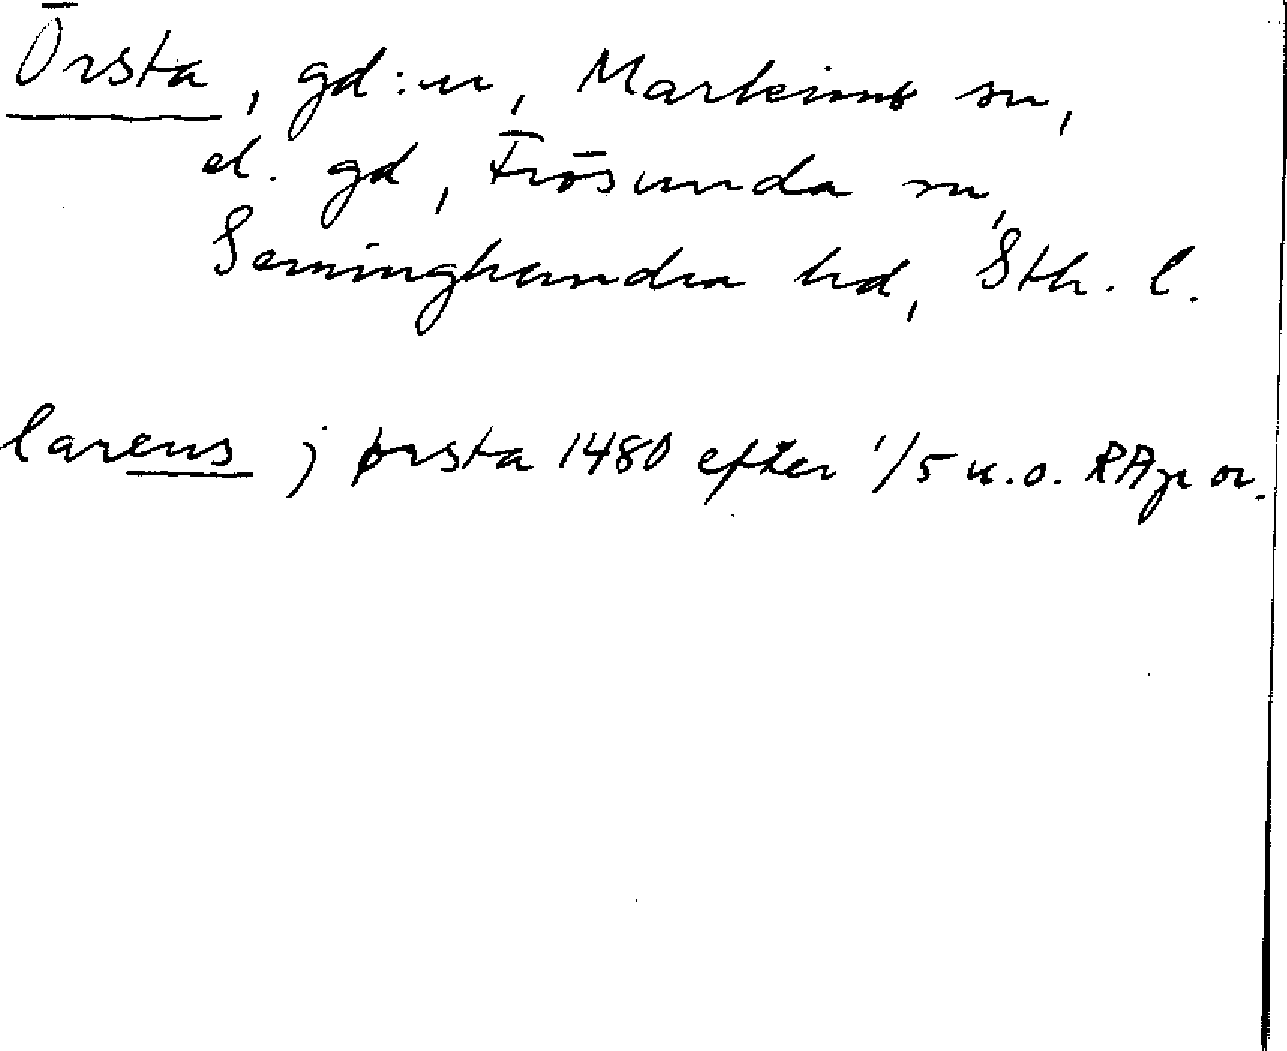 Örsta, gd:ar, Markims sn,
el. gd, Frösunda sn,
Seminghundra hd, Sth. l.
larens j ørsta 1480 efter 1/5 u.o. RAp or.